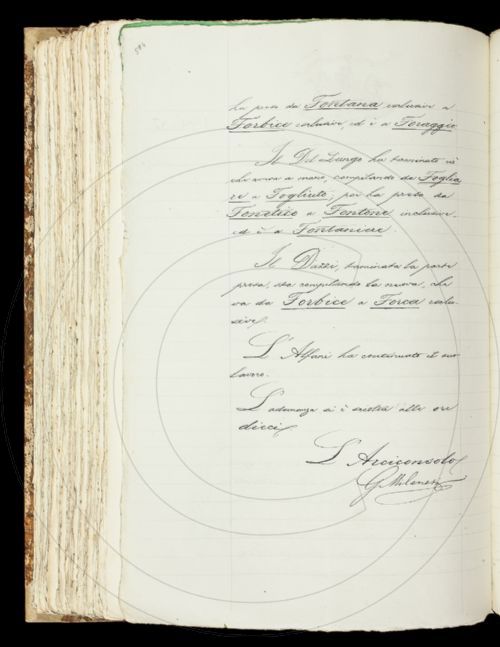 584
ha preso da Fontana esclusive a
Forbice esclusive, ed è a Foraggio
Il Del Lungo ha terminato ciò
che aveva a mano, compilando da Foglia
re a Fogliuto; poi ha preso da
Fonetico a Fontone inclusive.
ed è a Fontaniere.
Il Dazzi, terminata la parte
presa, sta compilando la nuova, che
va da Forbice a Forca esclu-
sive.
L'Alfani ha continuato il suo
lavoro.
L'adunanza si è sciolta alle ore
dieci
L'Arciconsolo
G. Milanesi